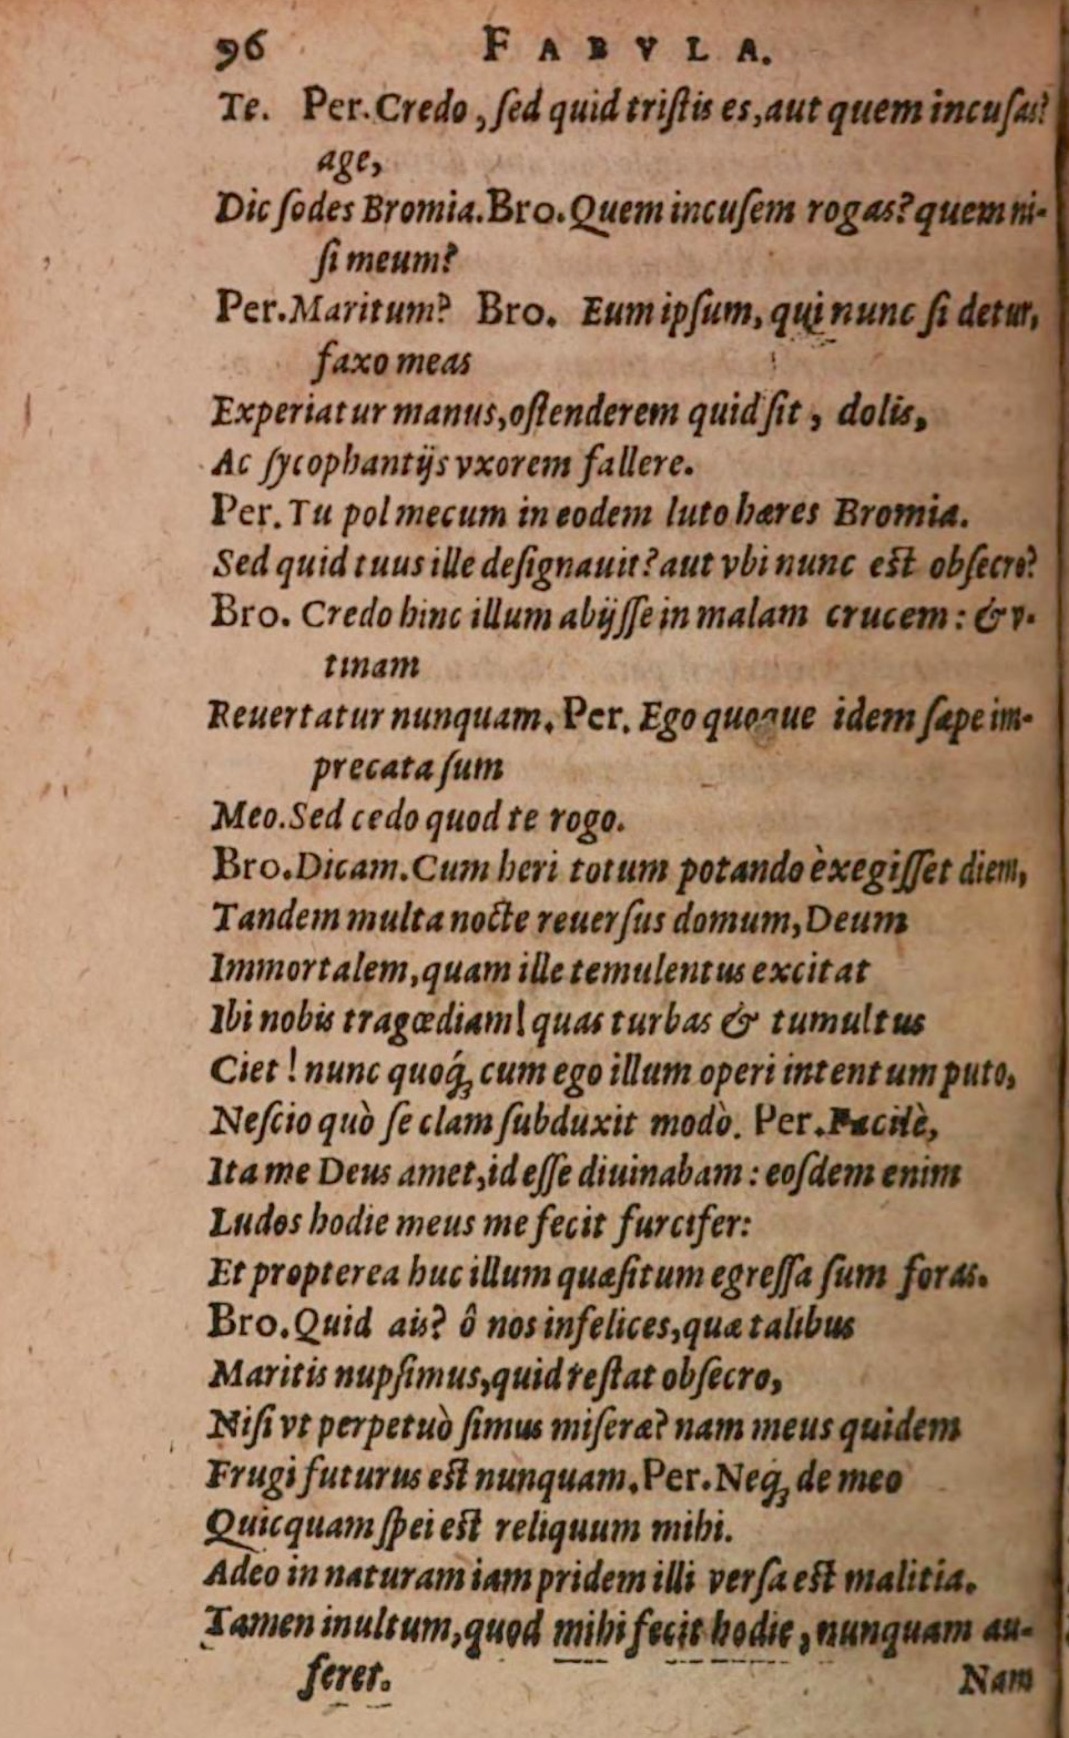 96 FABVLA.
Te. Per. Credo, ſed quid triſtis es, aut quem incuſas?
age,
Dic ſodes Bromia. Bro. Quem incuſem rogas? quem ni-
ſi meum?
Per. Maritum? Bro. Eum ipſum, qui nunc ſi detur,
faxo meas
Experiatur manus, oſtenderem quid ſit, dolis,
Ac ſycophantijs vxorem fallere.
Per. Tu pol mecum in eodem luto hæres Bromia.
Sed quid tuus ille deſignauit? aut vbi nunc est obſecro?
Bro. Credo hinc illum abijſſe in malam crucem: & v-
tinam
Reuertatur nunquam. Per. Ego quoque idem ſæpe im-
precata ſum
Meo. Sed cedo quod te rogo.
Bro. Dicam. Cum heri totum potando èxegiſſet diem,
Tandem multa nocte reuerſus domum, Deum
Immortalem, quam ille temulentus excitat
Ibi nobis tragœdiam! quas turbas & tumultus
Ciet! nunc quoq́ꝫ cum ego illum operi intentum puto,
Neſcio quò ſe clam ſubduxit modò. Per. Facilè,
Ita me Deus amet, id eſſe diuinabam: eoſdem enim
Ludos hodie meus me fecit furcifer:
Et propterea huc illum quæſitum egreſſa ſum foras.
Bro. Quid ais? ô nos infelices, quæ talibus
Maritis nupſimus, quid reſtat obſecro,
Niſi vt perpetuò ſimus miſeræ? nam meus quidem
Frugi futurus est nunquam. Per. Neqꝫ de meo
Quicquam ſpei est reliquum mihi.
Adeo in naturam iam pridem illi verſa est malitia.
Tamen inultum, quod mihi fecit hodie, nunquam au-
feret. Nam